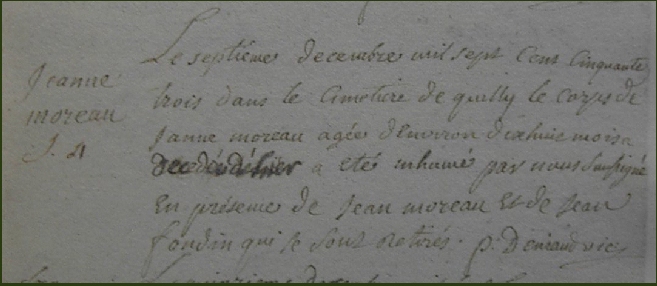 Jeanne
moreau
S. 4
Le septième decembre mil sept Cent Cinquante
trois dans le Cimetiere de quilly le corps de
Janne moreau agée d'Environ dixhuit mois
decédé d'hier a etés inhumé par nous Soussigné
En présence de Jean moreau Et de Jean
fondin qui se sont retirés. p. Deniaud vic